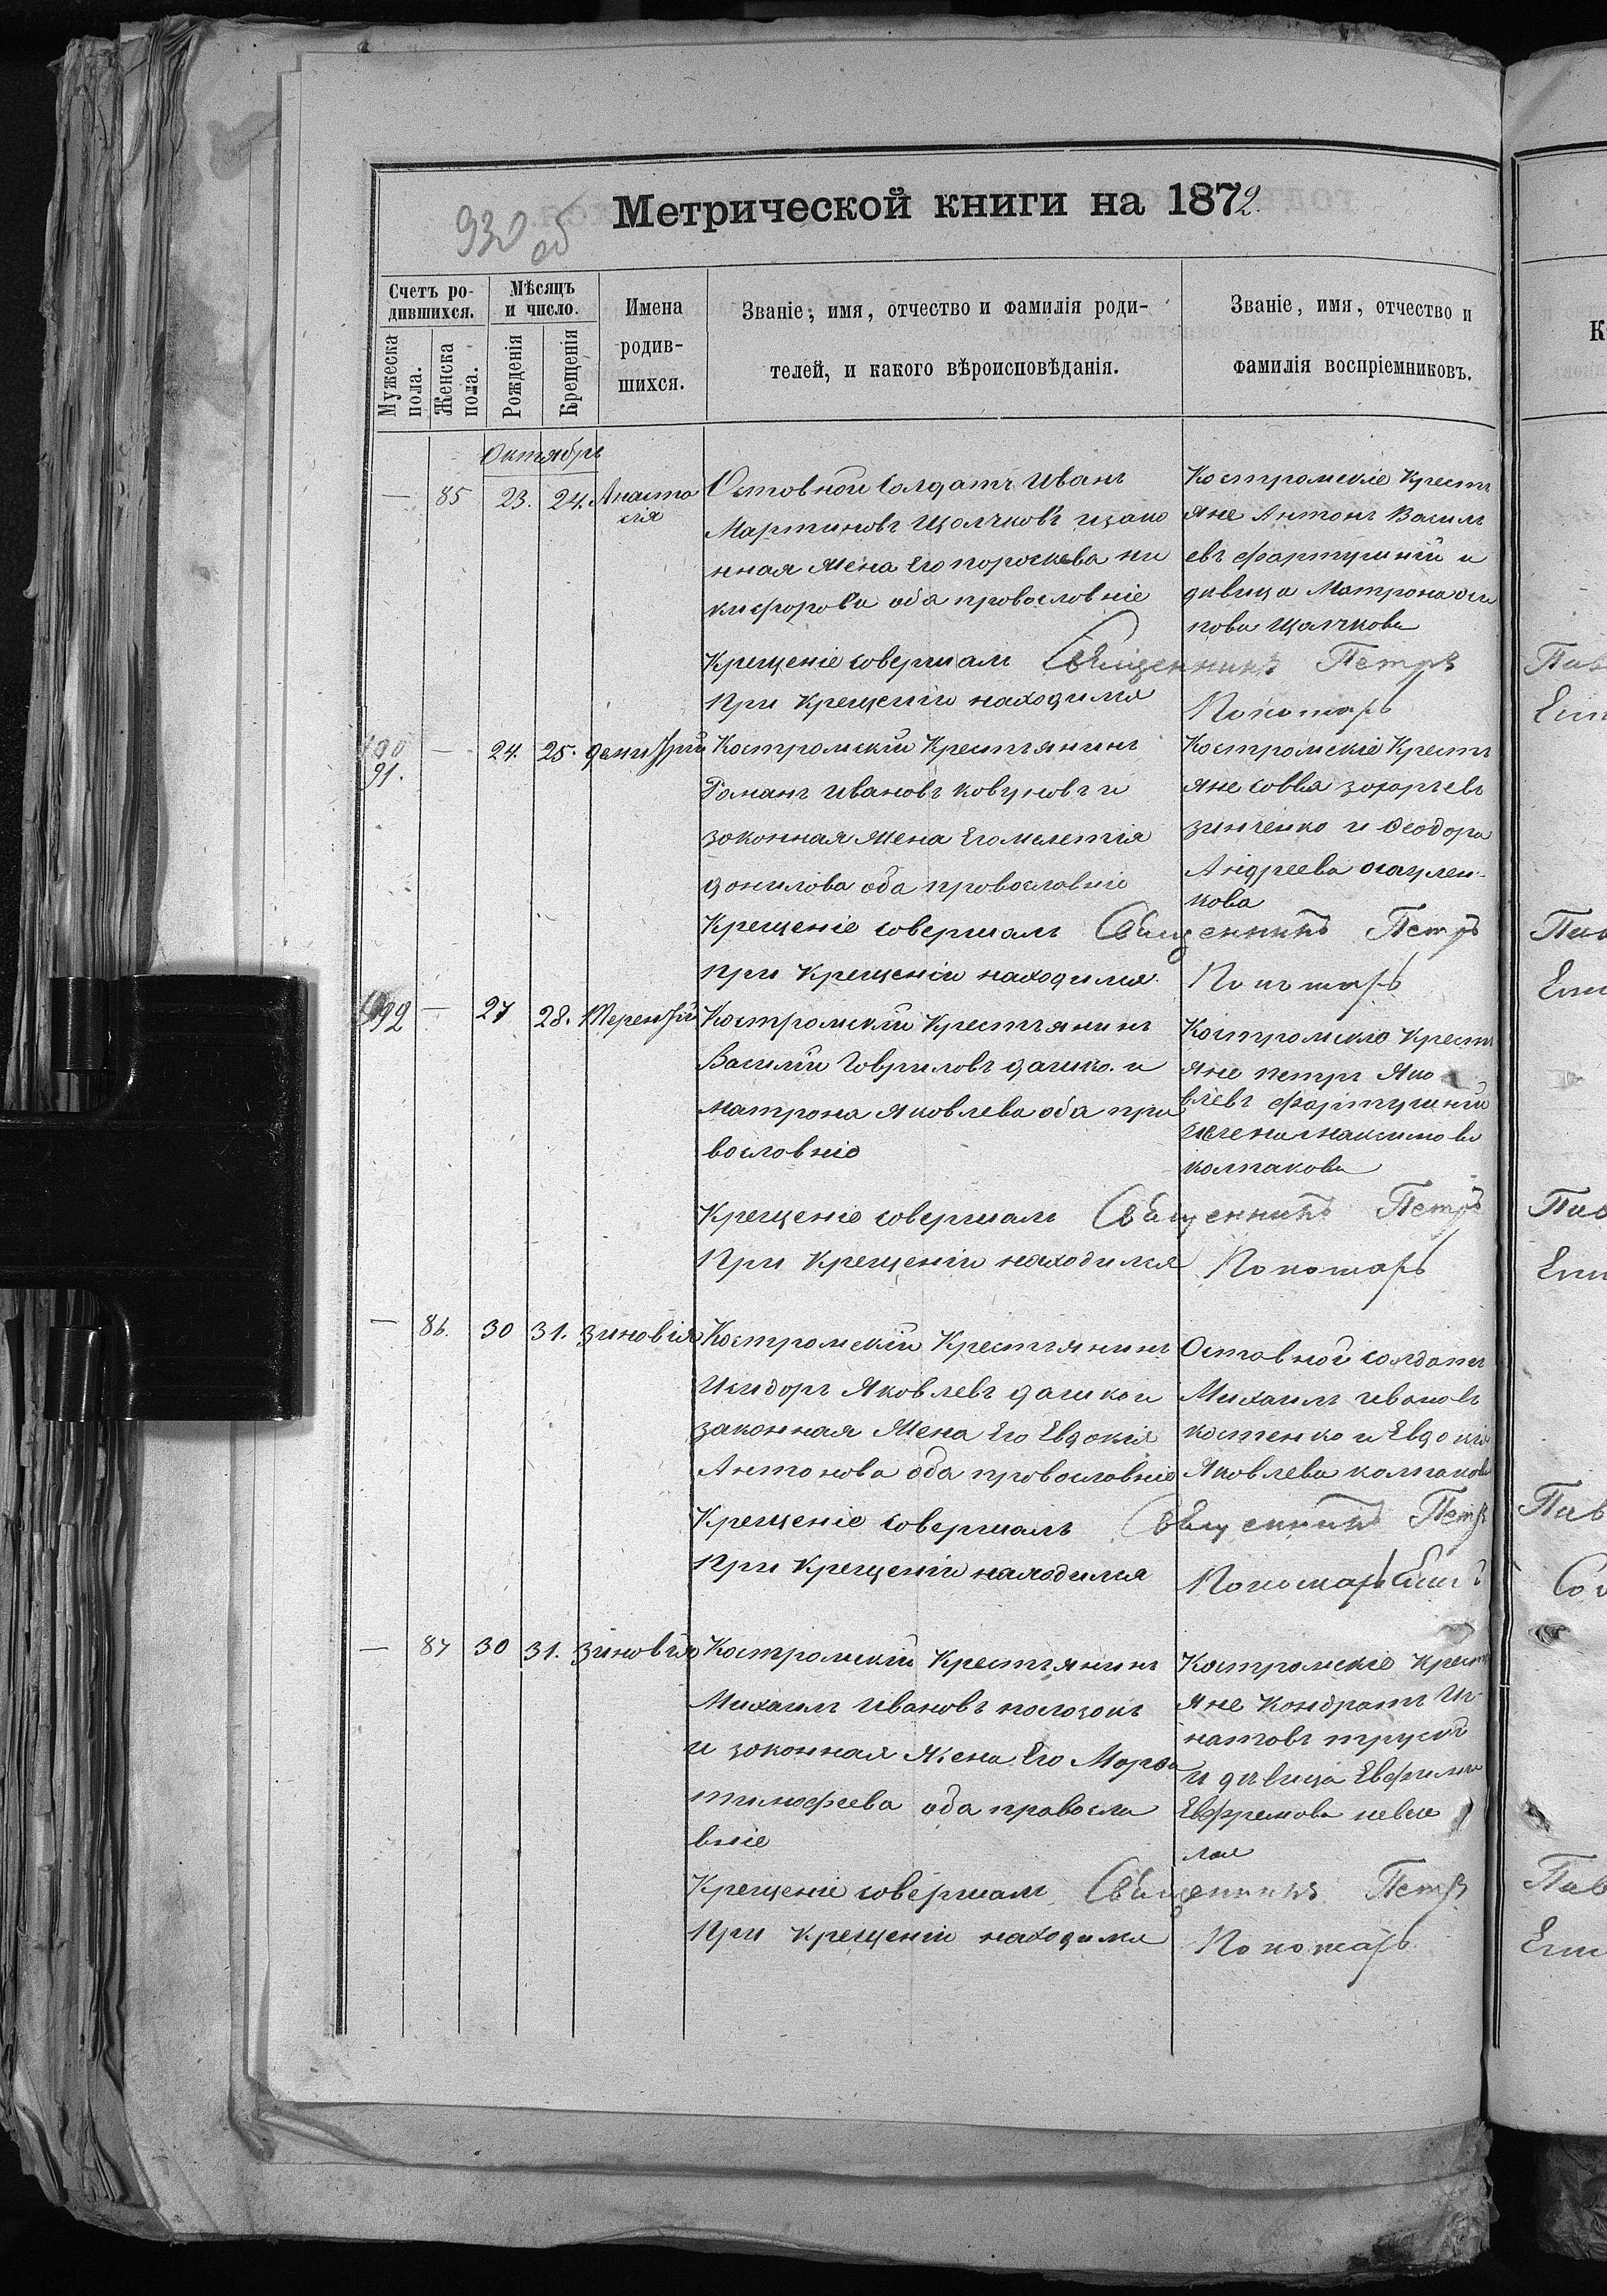 930 об
Метрической книги на 1872.
Счетъ ро-
дившихся.
Мужеска
пола.
Женска
пола.
Мѣсяцъ
и число.
Рожденія
Крещенія
Имена
родив-
шихся.
Званіе, имя, отчество и фамилія роди-
телей, и какого вѣроисповѣданія.
Званіе, имя, отчество и
фамилія воспріемниковъ.
Октябрь
— 85 23. 24. Анаста
сія
Отовной Солдатъ Иванъ
Мартиновъ Щолчковъ изако
нная жена Его пороскева ни
кифорова оба провословніе
Костромскіе Крестъ
яне Антонъ Василь
евъ фартушній и
дивица Матрона оси
пова Щолчкова
Крещеніе совершал Священникъ Петръ
При Крещеніи находился Пономарь
91. — 24. 25. Демитрій
Костромскій Крестьянинъ
Романъ Ивановъ ковуновъ и
зоконная жена Его милетія
донилова оба провославніе
Костромскіе Крестъ
яне совва зохарьевъ
зинченко и Феодора
Андреева осаулен-
кова
Крещеніе совершалъ Священникъ Петръ
при Крещеніи находился Пономарь
92 — 27 28. Терентій
Костромскій Крестьянинъ
Василій Говриловъ дашко. и
матрона Яковлева оба пра
вословніе
Костромскіе Крестъ
яне петръ Яко
влевъ фартушній
максимова
колпакова
Крещеніе совершалъ Священникъ Петръ
При Крещеніи находился Пономарь
— 86. 30 31. зиновія
Костромскій Крестьянинъ
Исидоръ Яковлевъ дашко и
законная жена Его Евдокія
Антонова оба провославніе
Отовной солдатъ
Михаилъ ивановъ
костенко и Евдокія
Яковлева колпакова
Крещеніе совершалъ Священникъ Петръ
При Крещеніи находился Пономарь
— 87 30 31. зиновія
Костромскій Крестьянинъ
Михаилъ Ивановъ полозокъ
и зоконная жена Его Марфа
тимофеева оба правосла
вніе
Костромскіе Крестъ
яне Кондратъ Иг
натовъ трускій
и дивица Евфимія
Евфремова
Крещеніе совершал Священникъ Петръ
При Крещеніи находился Пономарь
К
Пав
Пав
Пав
Пав
Пав